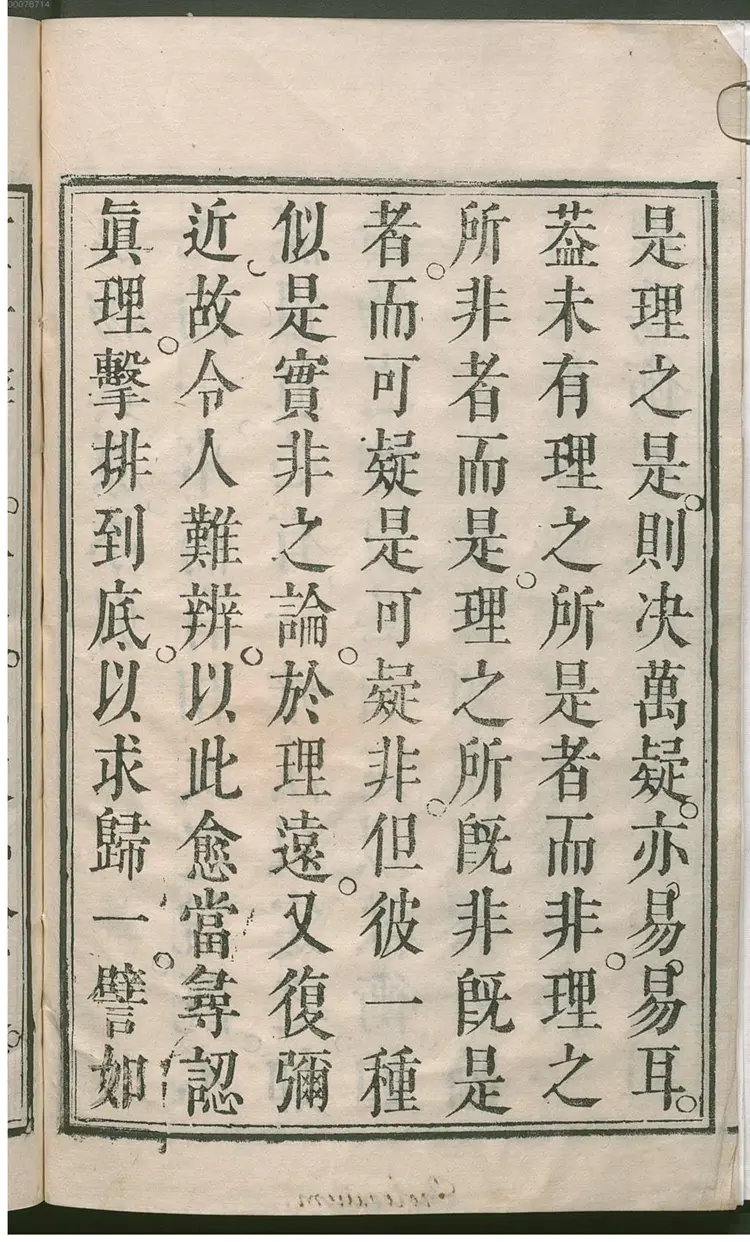 是理之是。則决萬疑。亦易。易耳。
葢未有理之所是者而非。理之
所非者而是。理之所旣非旣是
者。而可疑是可疑非。但彼一種
似是實非之論。於理遠。又復彌
近。故令人難辨。以此愈當尋認
眞理。擊排到底。以求歸一。譬如
00076714